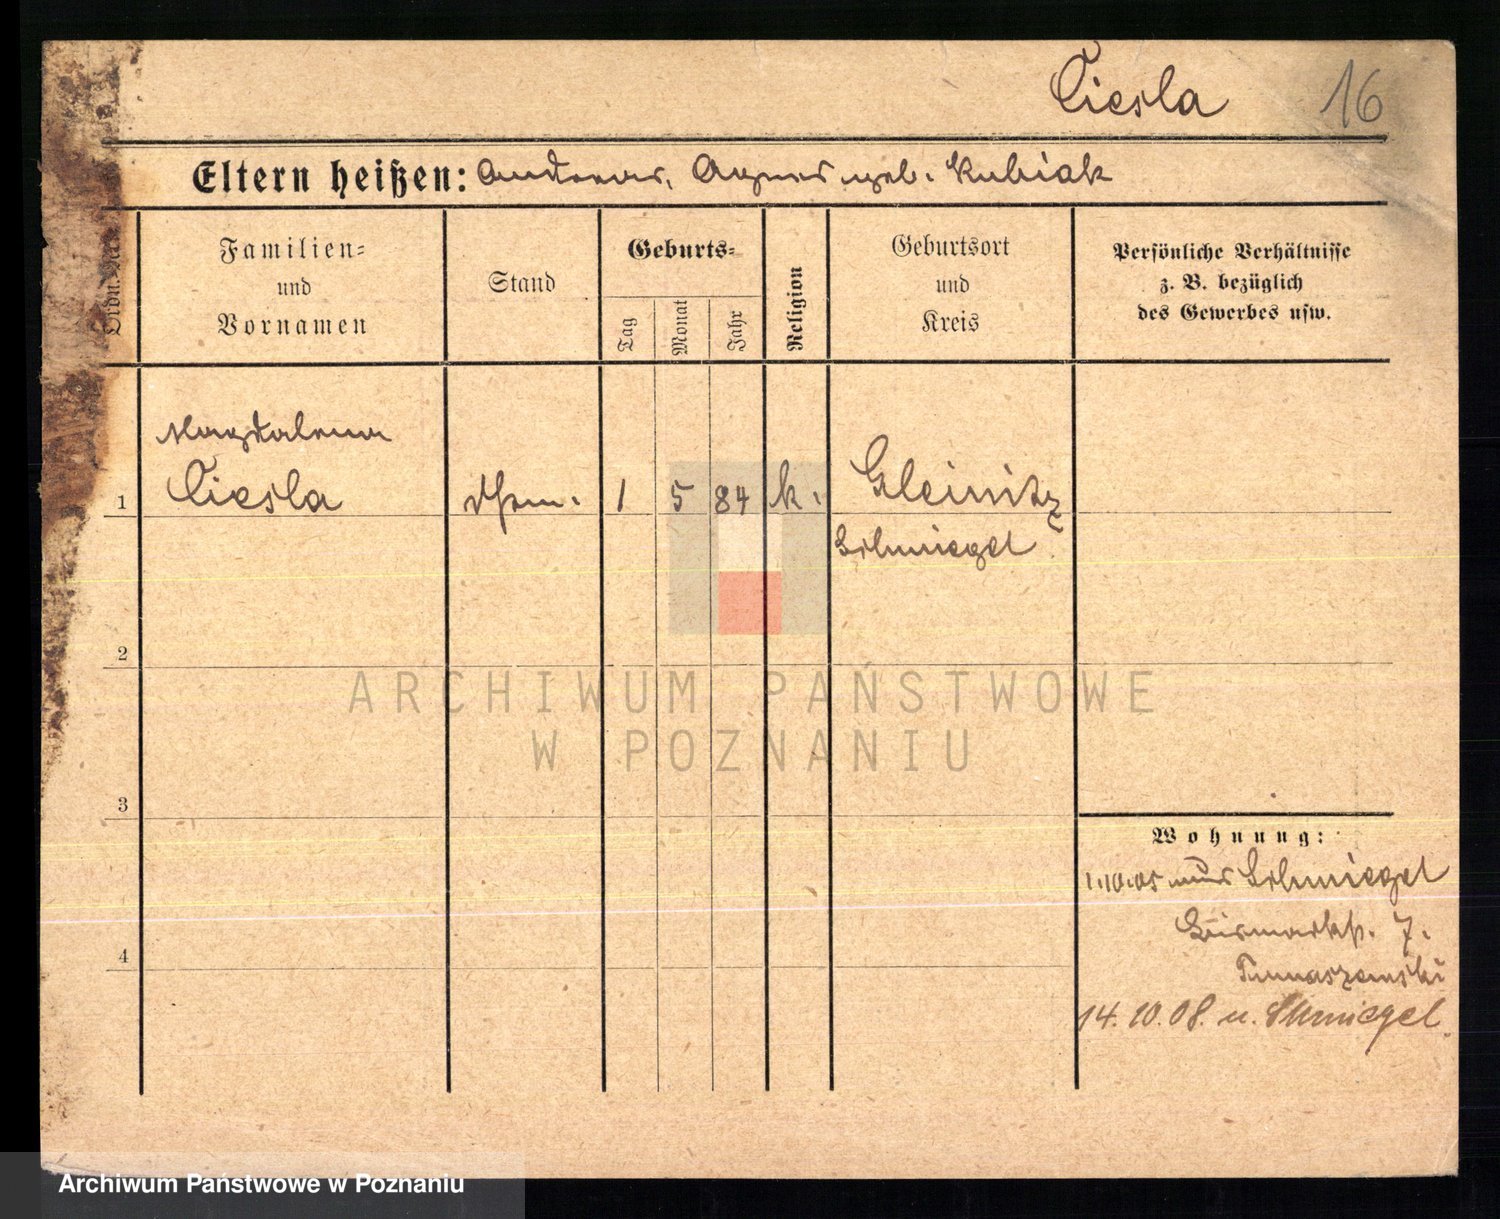 Ciesla 16
Eltern heißen: Andreas, Agnes geb. Kubiak
Ordn. Nr.
Familien-
und
Vornamen
Stand
Geburts-
Tag
Monat
Jahr
Religion
Geburtsort
und
Kreis
Persönliche Verhältnisse
z. B. bezüglich
des Gewerbes usw.
Magdalena
1 Ciesla 1 5 84 k. Gleinitz
Schmiegel
2
ARCHIWUM PAŃSTWOWE
W POZNANIU
3
Wohnung:
1.10.05 aus Schmiegel
7.
4
14.10.08. n. Schmiegel.
Archiwum Państwowe w Poznaniu